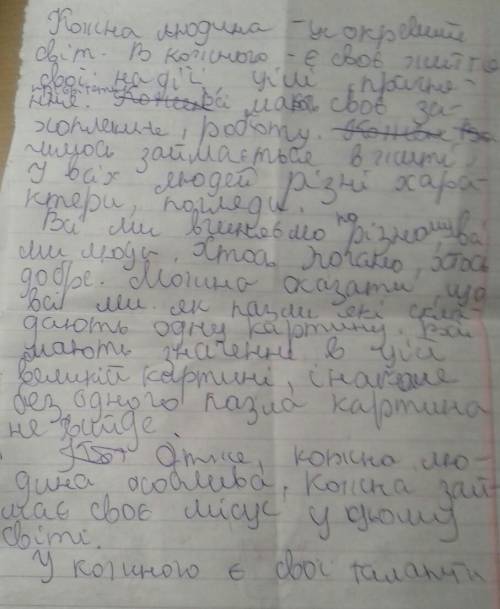 Кожна людина - це окремий
світ. В кожного - є своє життя
свої надії цілі, прагне-
ння. Всі мають своє за-
хоплення, роботу.
чимось займається в житті.
У всіх людей різні хара-
ктери, погляди.
Всі ми вчиняємо по різному, всі
ми люди. Хтось погано, хтось
добре. Можна сказати, що
всі ми як пазли які скла-
дають одну картину. Всі
мають значення в цій
великій картині, інакше
без одного пазла картина
не вийде.
Отже, кожна лю-
дина особлива, кожна зай-
має своє місце у цьому
світі.
У кожного є свої таланти